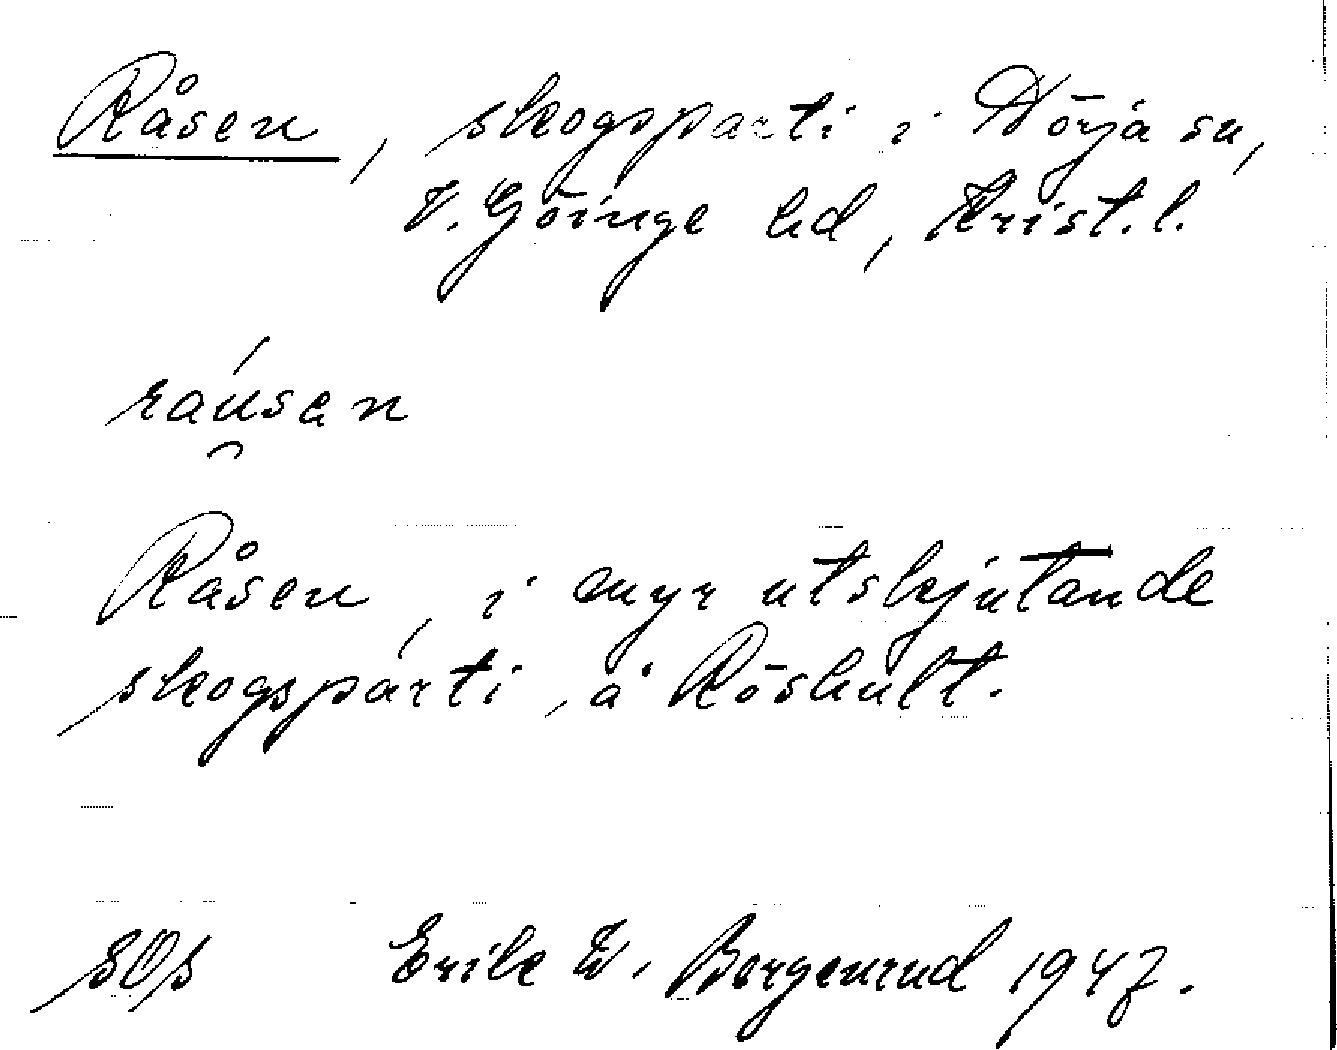 Råsen, skogsparti i Nörja sn,
V. Göinge hd, Krist. l.
ráu̯sen
Råsen, i myr utskjutande
skogsparti, å Röshult.
SOs Erik W. Borgenrud 1947.